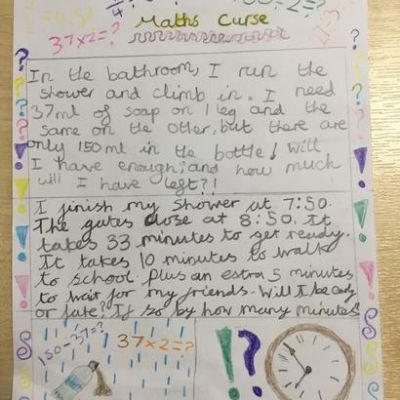 37x2=?
Maths Curse
In the bathroom, I run the
shower and climb in. I need
37ml of soap on 1 leg and the
same on the other, but there are
only 150ml in the bottle! Will
I have enough, and how much
will I have left?!
I finish my shower at 7:50.
The gates close at 8:50. It
takes 33 minutes to get ready.
It takes 10 minutes to walk
to school plus an extra 5 minutes
to wait for my friends. Will I be early
or late? If so by how many minutes
150-37=?
37x2=?
!?